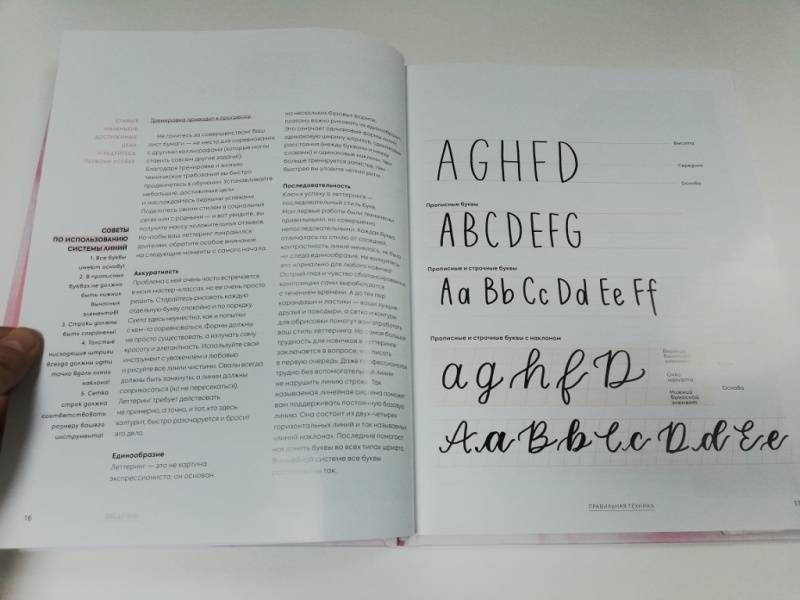 СТАВЬТЕ
МАЛЕНЬКИЕ
ДОСТИЖИМЫЕ
ЦЕЛИ
И РАДУЙТЕСЬ
ПЕРВОМУ УСПЕХУ
СОВЕТЫ
ПО ИСПОЛЬЗОВАНИЮ
СИСТЕМЫ ЛИНИЙ
1. Все буквы
имеют основу!
2. В прописных
буквах не должно
быть нижних
выносных
элементов!
3. Строки должны
быть сохранены!
4. Толстые
нисходящие штрихи
всегда должны идти
точно вдоль линии
наклона!
5. Сетка
строк должна
соответствовать
размеру вашего
инструмента!
Тренировка приводит к прогрессу
Не гонитесь за совершенством! Ваш
лист бумаги — не место для соревнования
с другими каллиграфами (которые могли
ставить совсем другие задачи).
Благодаря тренировке и знанию
технические требования вы быстро
продвинетесь в обучении. Устанавливайте
небольшие, достижимые цели
и наслаждайтесь первыми успехами.
Поделитесь своим стилем в социальных
сетях или с родными — и вот увидите, вы
получите массу положительных отзывов.
Но чтобы ваш леттеринг понравился
зрителям, обратите особое внимание
на следующие моменты с самого начала.
Аккуратность
Проблема с ней очень часто встречается
в моих мастер-классах, но ее очень просто
решить. Старайтесь рисовать каждую
отдельную букву спокойно и по порядку.
Суета здесь неуместна, как и попытки
с кем-то соревноваться. Формы должны
не просто существовать, а излучать саму
красоту и элегантность. Используйте свой
инструмент с уважением и любовью
и рисуйте все линии чистыми. Овалы всегда
должны быть замкнуты, а линии должны
соприкасаться (но не пересекаться).
Леттеринг требует действовать
не примерно, а точно, и тот, кто здесь
халтурит, быстро разочаруется и бросит
это дело.
Единообразие
Леттеринг — это не картина
экспрессиониста; он основан
на нескольких базовых формах,
поэтому важно рисовать их единообразно.
Это означает одинаковые формы линий,
одинаковую ширину штрихов, одинаковые
расстояния (между буквами и между
словами) и одинаковые наклоны. Чем
больше тренируется запястье, тем
быстрее вы уловите четкий ритм.
Последовательность
Ключ к успеху в леттеринге —
последовательный стиль букв.
Мои первые работы были технически
правильными, но совершенно
непоследовательными. Каждая буква
отличалась по стилю от соседней,
контрастность линий менялась, не было
ни следа единообразия. Не волнуйтесь:
это нормально для любого новичка!
Острый глаз и чувство сбалансированной
композиции сами выработаются
с течением времени. А до тех пор
карандаши и ластики — ваши лучшие
друзья и поводыри, а сетка и контуры
для обрисовки помогут вам отработать
ваш стиль леттеринга. Но самая большая
трудность для новичков в леттеринге
заключается в вопросе, что писать
в первую очередь. Даже профессионалам
трудно без вспомогательной линии
не нарушить линию строки. Так
называемая линейная система поможет
вам поддерживать постоянную базовую
линию. Она состоит из двух-четырех
горизонтальных линий и так называемых
«линий наклона». Последние помогают
наклонить буквы во всех типах шрифта.
В линейной системе все буквы
так.
16
A G H F D
Высота
Середина
Основа
Прописные буквы
A B C D E F G
Прописные и строчные буквы
Aa Bb Cc Dd Ee Ff
Прописные и строчные буквы с наклоном
a g h f D
Верхний
выносной
элемент
Нижний
выносной
элемент
Основа
Aa Bb Cc Dd Ee
ПРАВИЛЬНАЯ ТЕХНИКА